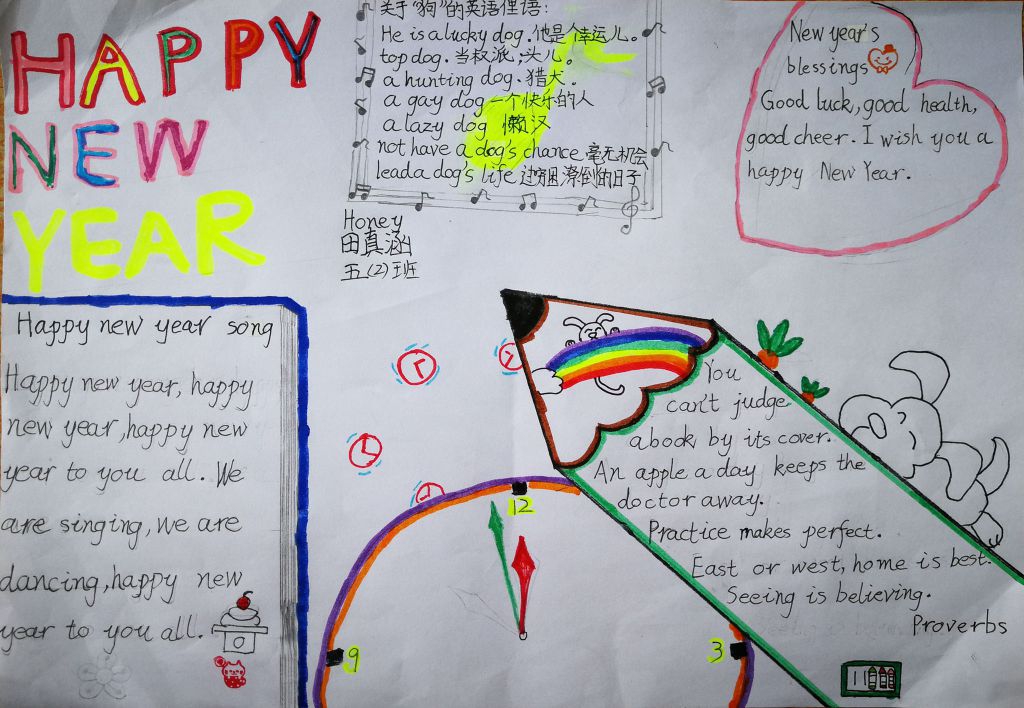 HAPPY
NEW
YEAR
关于"狗"的英语俚语:
He is a lucky dog.他是个幸运儿。
top dog.当权派;头儿。
a hunting dog.猎犬。
a gay dog 一个快乐的人
a lazy dog 懒汉
not have a dog's chance 毫无机会
lead a dog's life 过穷困潦倒的日子
Honey
田真涵
五(2)班
New year's
blessings
Good luck, good health,
good cheer. I wish you a
happy New Year.
Happy new year song
Happy new year, happy
new year, happy new
year to you all. We
are singing, we are
dancing, happy new
year to you all.
You
can't judge
a book by its cover.
An apple a day keeps the
doctor away.
Practice makes perfect.
East or west, home is best.
Seeing is believing.
Proverbs
12
9
3